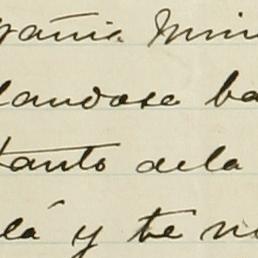 pañia Min
landose ba
tanto dela
lá y te n